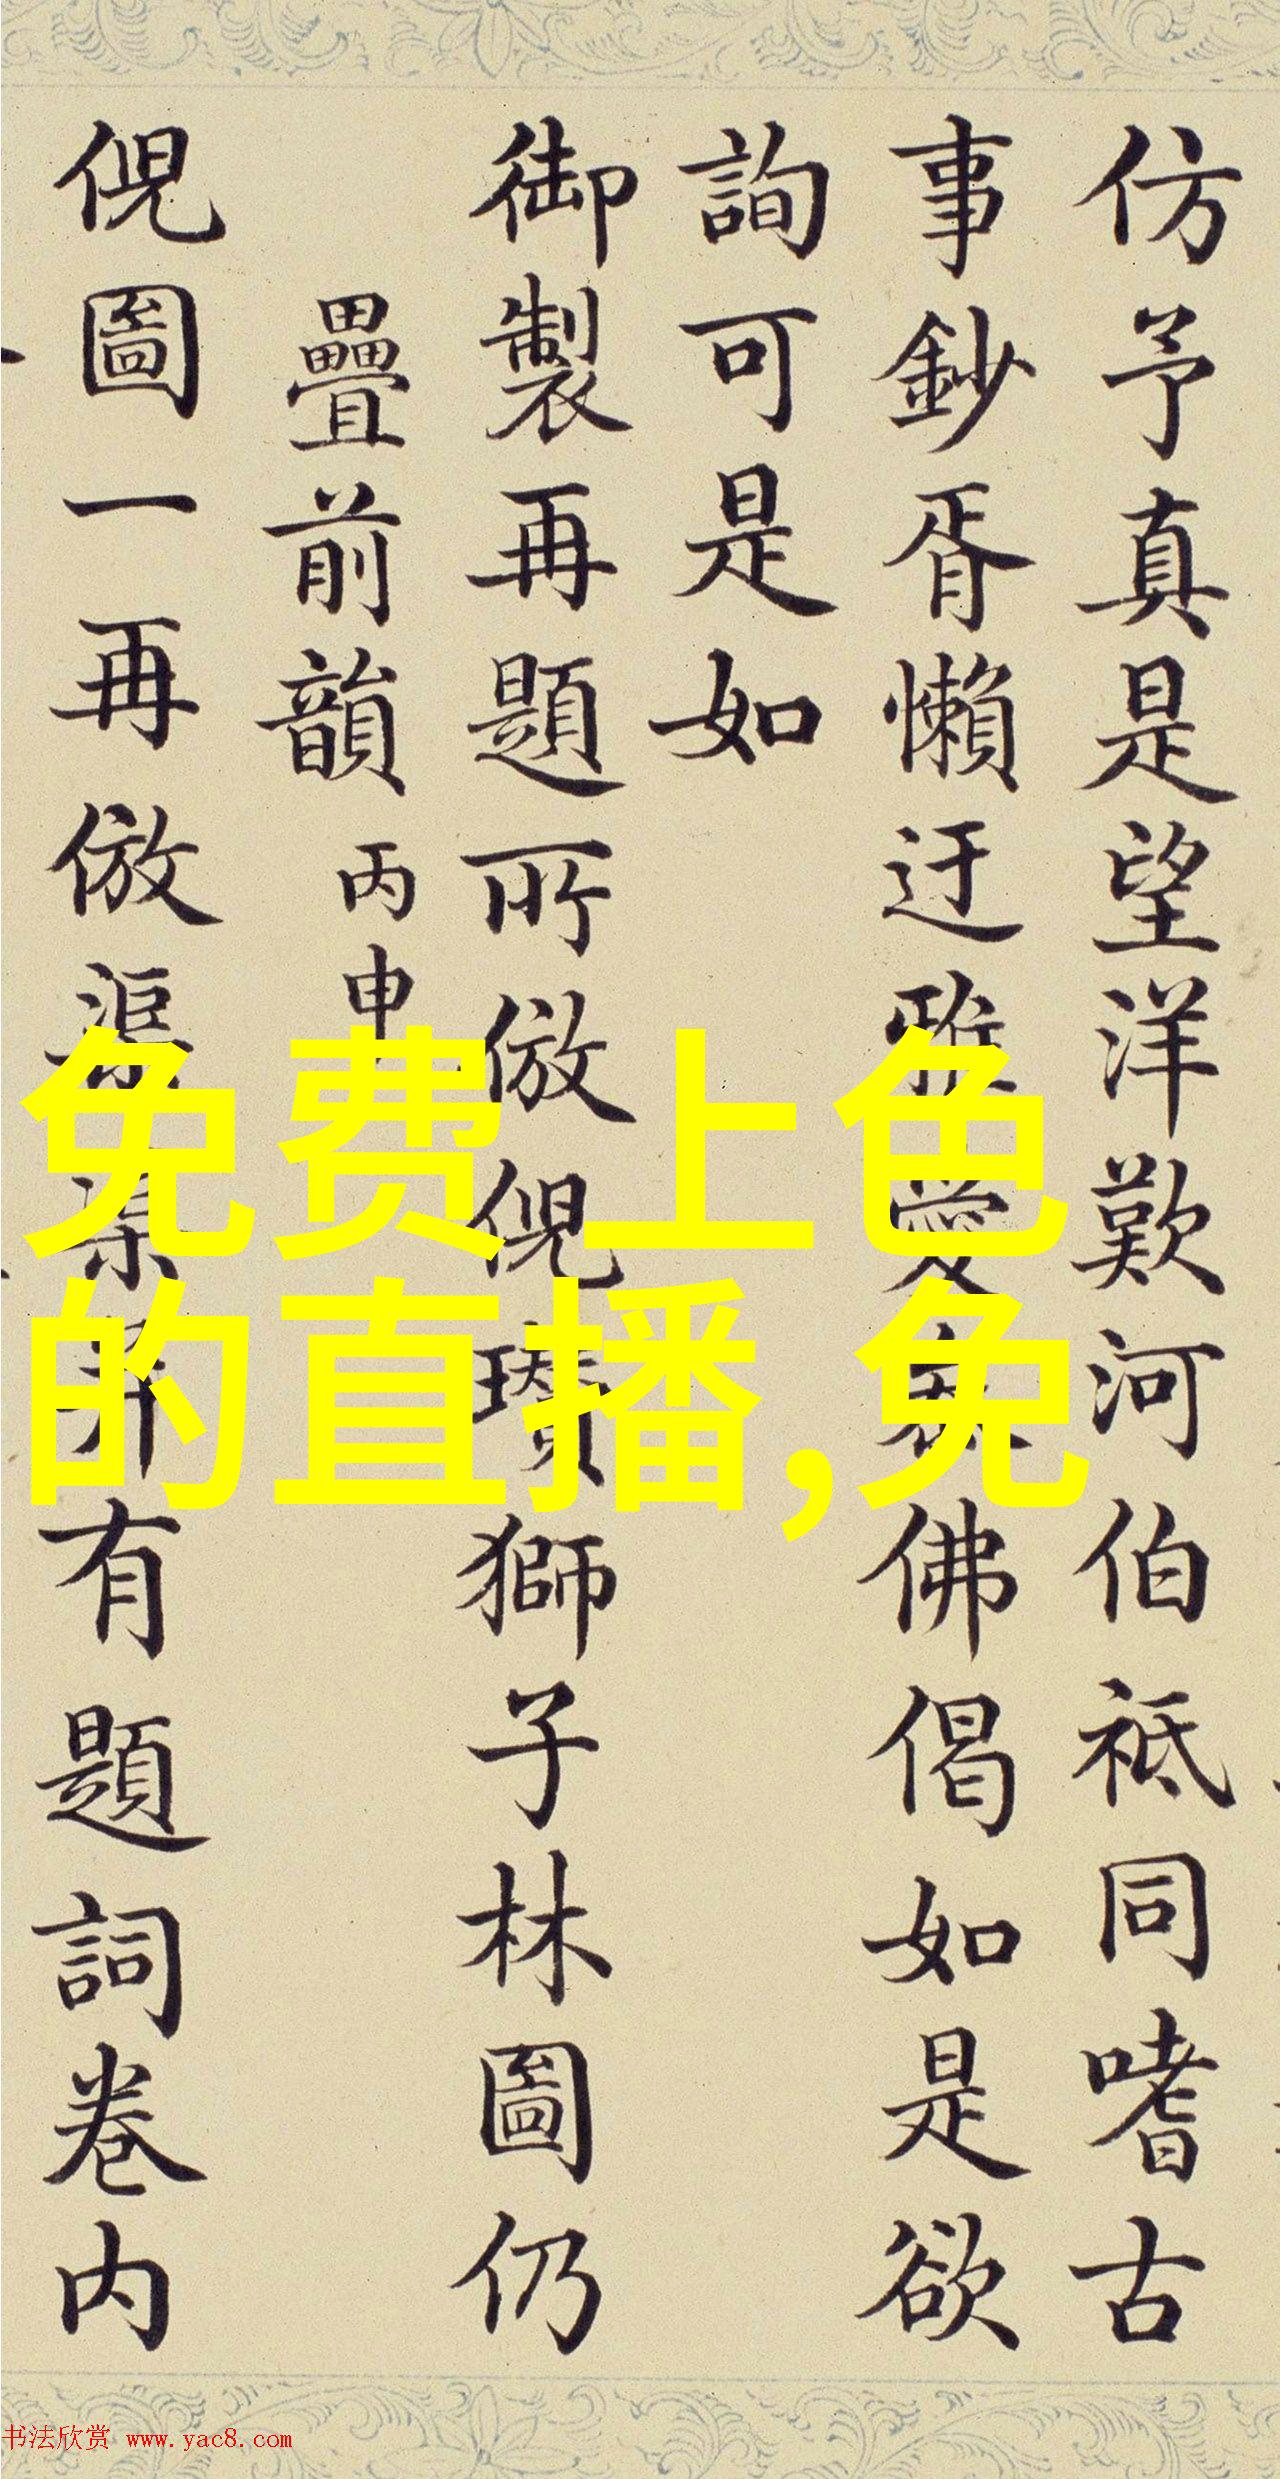 仿予真是望洋歎河伯祗同嗜古
事鈔胥懶迂雅愛佛偈如是欲
詢可是如
御製再題所倣倪瓚獅子林圖仍
疊前韻丙申
倪圖一再倣有題詞卷内
免费上色
的直播,免
书法欣赏 www.yac8.com